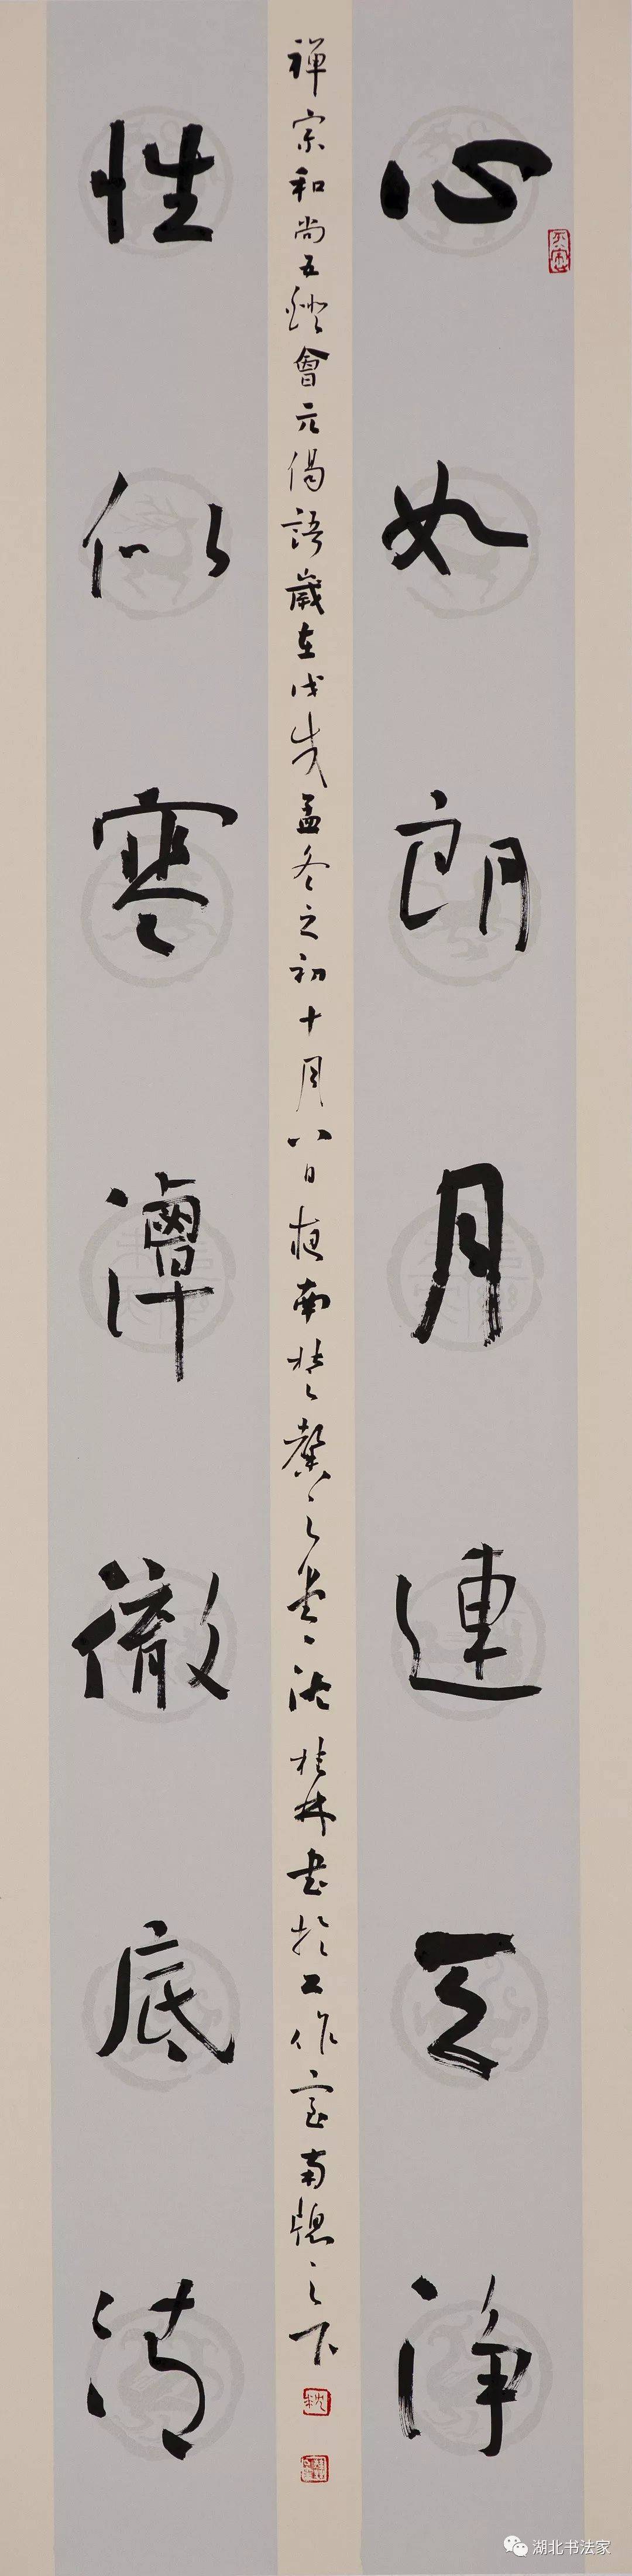 心如朗月連天淨
性似寒潭徹底清
禪宗和尚五燈會元偈語歲在戊戌孟冬之初十月八日夜南楚馨之堂沈桂林書於工作室南牕之下
湖北书法家